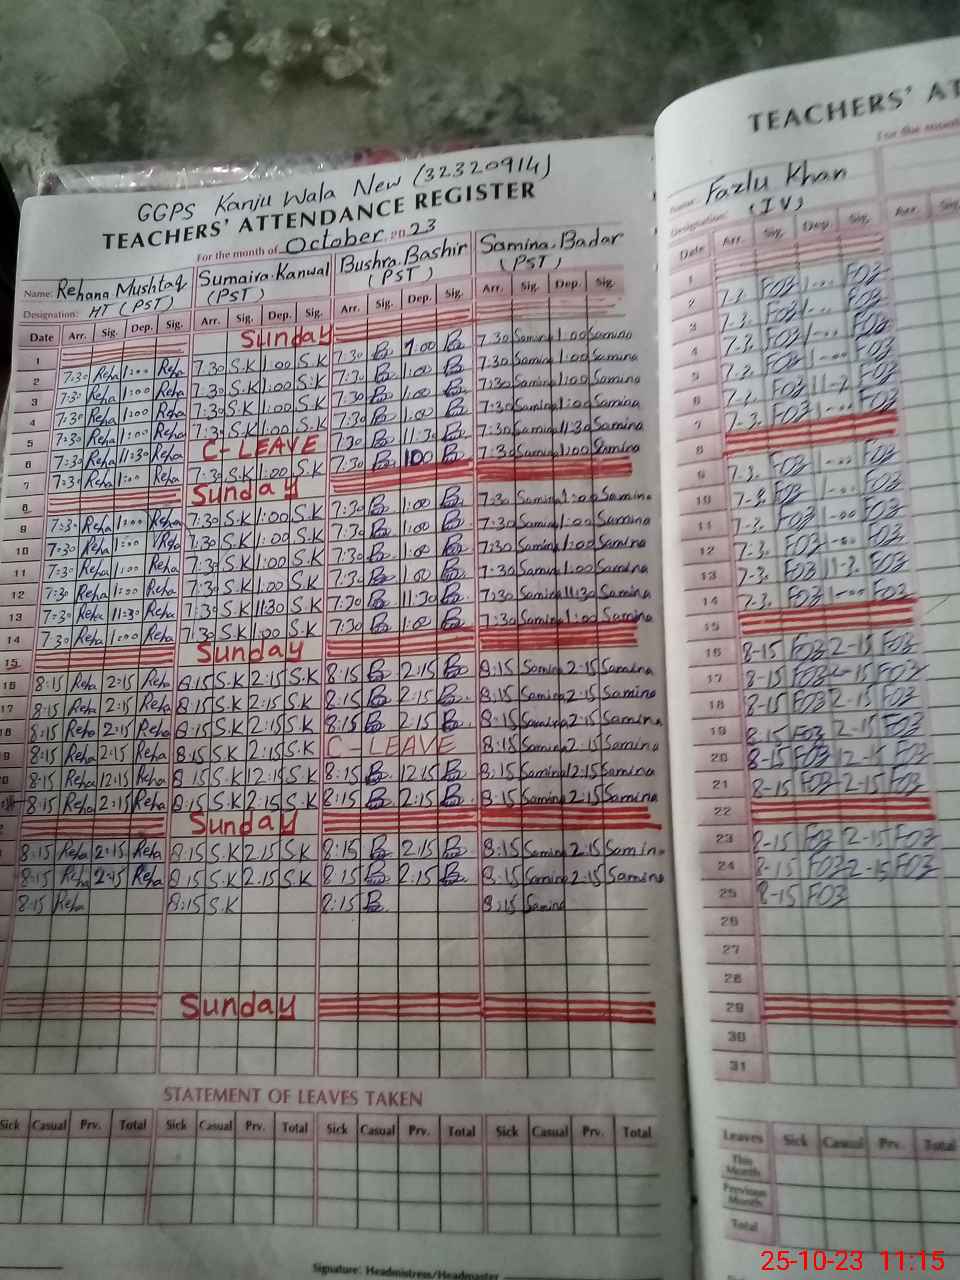 GGPS Kanju Wala New (32320914)
TEACHERS' ATTENDANCE REGISTER
For the month of October 2023
Name: Rehana Mushtaq Sumaira Kanwal Bushra Bashir Samina Badar
Designation: HT (PST) (PST) (PST) (PST)
Date Arr. Sig. Dep. Sig. Arr. Sig. Dep. Sig. Arr. Sig. Dep. Sig. Arr. Sig. Dep. Sig.
1 Sunday
2 7:30 Reha 1:00 Reha 7:30 S.K 1:00 S.K 7:30 1:00 7:30 Samina 1:00 Samina
3 7:30 Reha 1:00 Reha 7:30 S.K 1:00 S.K 7:30 1:00 7:30 Samina 1:00 Samina
4 7:30 Reha 1:00 Reha 7:30 S.K 1:00 S.K 7:30 1:00 7:30 Samina 1:00 Samina
5 7:30 Reha 1:00 Reha 7:30 S.K 1:00 S.K 7:30 1:00 7:30 Samina 1:00 Samina
6 7:30 Reha 11:30 Reha C-LEAVE 7:30 11:30 7:30 Samina 11:30 Samina
7 7:30 Reha 1:00 Reha 7:30 S.K 1:00 S.K 7:30 1:00 7:30 Samina 1:00 Samina
8 Sunday
9 7:30 Reha 1:00 Reha 7:30 S.K 1:00 S.K 7:30 1:00 7:30 Samina 1:00 Samina
10 7:30 Reha 1:00 Reha 7:30 S.K 1:00 S.K 7:30 1:00 7:30 Samina 1:00 Samina
11 7:30 Reha 1:00 Reha 7:30 S.K 1:00 S.K 7:30 1:00 7:30 Samina 1:00 Samina
12 7:30 Reha 1:00 Reha 7:30 S.K 1:00 S.K 7:30 1:00 7:30 Samina 1:00 Samina
13 7:30 Reha 11:30 Reha 7:30 S.K 11:30 S.K 7:30 11:30 7:30 Samina 11:30 Samina
14 7:30 Reha 1:00 Reha 7:30 S.K 1:00 S.K 7:30 1:00 7:30 Samina 1:00 Samina
15 Sunday
16 8:15 Reha 2:15 Reha 8:15 S.K 2:15 S.K 8:15 2:15 8:15 Samina 2:15 Samina
17 8:15 Reha 2:15 Reha 8:15 S.K 2:15 S.K 8:15 2:15 8:15 Samina 2:15 Samina
18 8:15 Reha 2:15 Reha 8:15 S.K 2:15 S.K 8:15 2:15 8:15 Samina 2:15 Samina
9 8:15 Reha 2:15 Reha 8:15 S.K 2:15 S.K C-LEAVE 8:15 Samina 2:15 Samina
8:15 Reha 12:15 Reha 8:15 S.K 12:15 S.K 8:15 12:15 8:15 Samina 12:15 Samina
8:15 Reha 2:15 Reha 8:15 S.K 2:15 S.K 8:15 2:15 8:15 Samina 2:15 Samina
Sunday
8:15 Reha 2:15 Reha 8:15 S.K 2:15 S.K 8:15 2:15 8:15 Samina 2:15 Samina
8:15 Reha 2:15 Reha 8:15 S.K 2:15 S.K 8:15 2:15 8:15 Samina 2:15 Samina
8:15 Reha 8:15 S.K 8:15 8:15 Samina
Sunday
STATEMENT OF LEAVES TAKEN
Sick Casual Prv. Total Sick Casual Prv. Total Sick Casual Prv. Total Sick Casual Prv. Total
Signature: Headmistress/Headmaster
TEACHERS' AT
For the month
Name: Fazlu Khan
Designation: (IV)
Date Arr. Sig. Dep. Sig. Arr. Sig.
1
2 7-3. FOZ 1-00 FOZ
3 7-3. FOZ 1-00 FOZ
4 7-3. FOZ 1-00 FOZ
5 7-3. FOZ 1-00 FOZ
6 7-3. FOZ 11-3 FOZ
7 7-3. FOZ 1-00 FOZ
8
9 7-3. FOZ 1-00 FOZ
10 7-3. FOZ 1-00 FOZ
11 7-3. FOZ 1-00 FOZ
12 7-3. FOZ 1-00 FOZ
13 7-3. FOZ 11-3. FOZ
14 7-3. FOZ 1-00 FOZ
15
16 8-15 FOZ 2-15 FOZ
17 8-15 FOZ 2-15 FOZ
18 8-15 FOZ 2-15 FOZ
19 8-15 FOZ 2-15 FOZ
20 8-15 FOZ 12-15 FOZ
21 8-15 FOZ 2-15 FOZ
22
23 8-15 FOZ 2-15 FOZ
24 8-15 FOZ 2-15 FOZ
25 8-15 FOZ
26
27
28
29
30
31
Leaves Sick Casual Prv. Total
This Month
Previous Month
Total
25-10-23 11:15